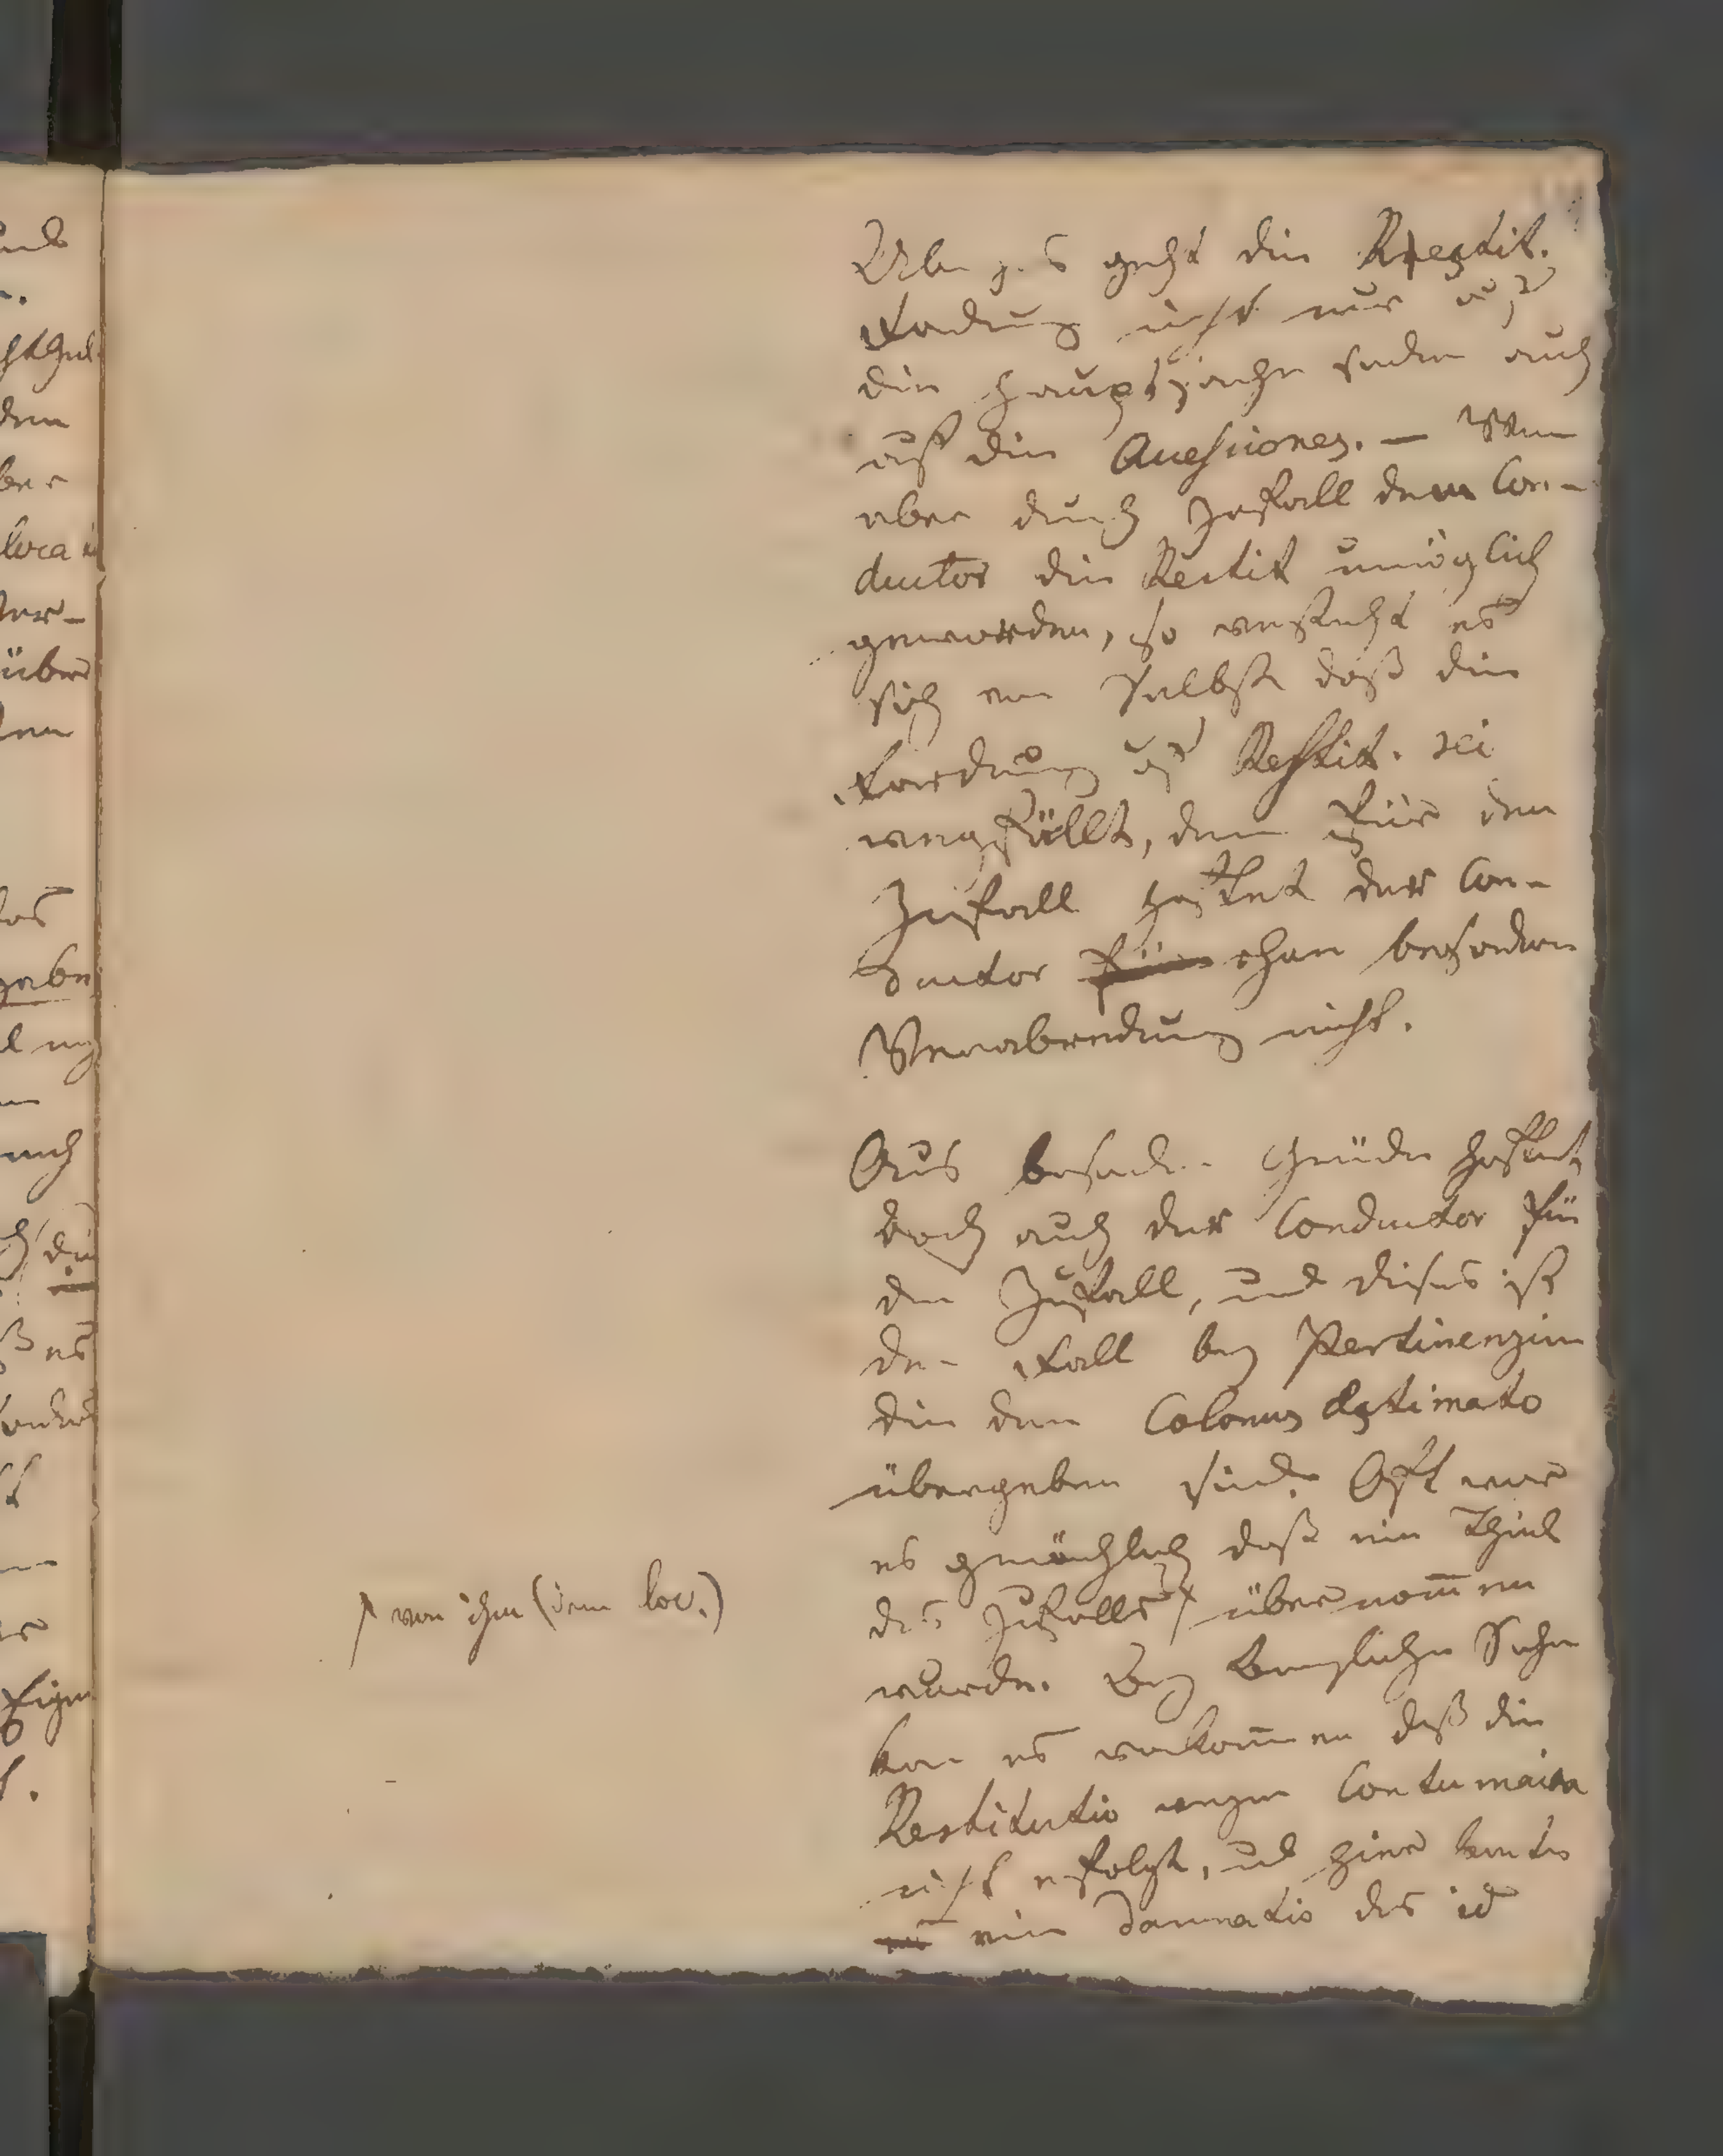 Übrigens geht die Restit.
Forderung nicht nur auf
die Hauptsache sondern auch
auf die Accessiones. — Wenn
aber durch Zufall dem Con-
ductor die Restit unmöglich
geworden, so versteht es
sich von Selbst daß die
Forderung auf Restit. rei
wegfällt, denn für den
Zufall haftet der Con-
ductor für ohne besondere
Verabredung nicht.
Aus besondern Gründen haftet
doch auch der Conductor für
den Zufall, und dieses ist
der Fall bey Pertinenzien
die dem Colonus aestimato
übergeben sind. Oft war
es gewöhnlich daß ein Theil
des Zufalls übernommen
von ihm (dem loc.)
wurde. Bey beweglichen Sachen
kann es vorkommen daß die
Restitutio wegen Contumacia
nicht erfolgt, und hier konnte
eine Damnatio des id